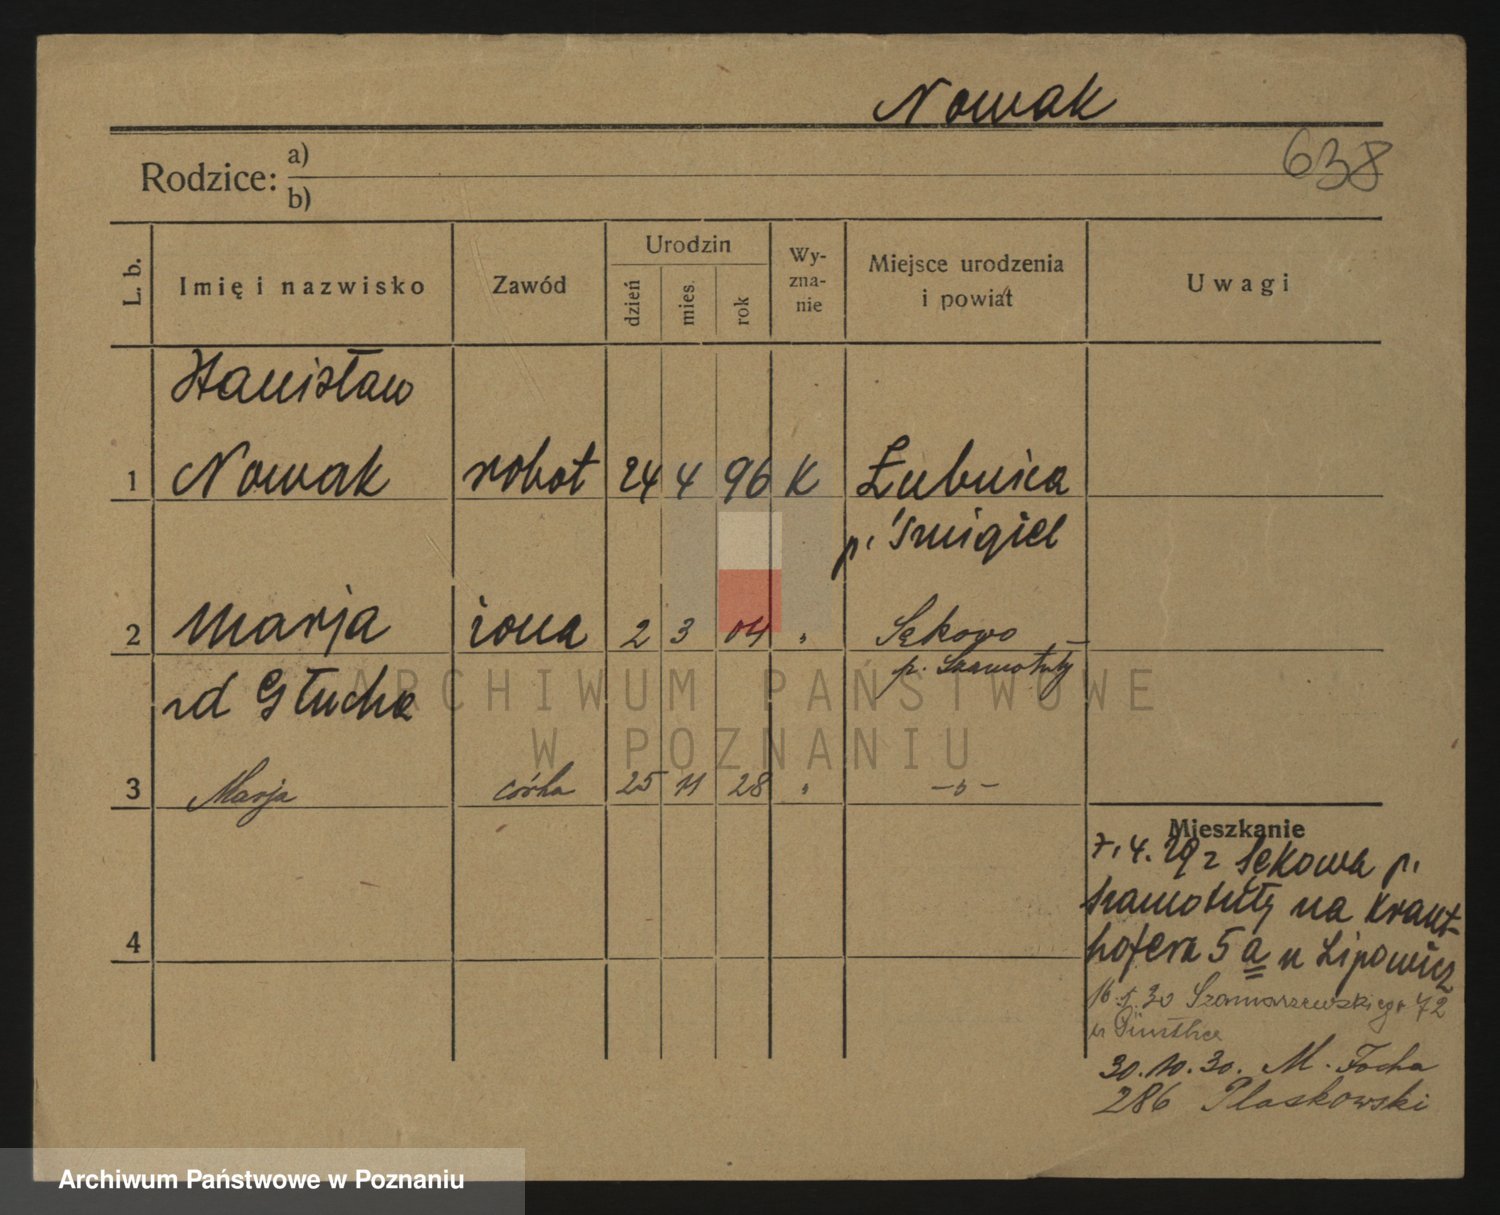 Nowak
638
Rodzice: a)
b)
L. b.
Imię i nazwisko
Zawód
Urodzin
dzień
mies.
rok
Wy-
zna-
nie
Miejsce urodzenia
i powiat
Uwagi
Stanisław
1 Nowak robot 24 4 96 K Łubnica
p. Śmigiel
2 Marja żona 2 3 04 " Sękowo
p. Szamotuły
zd Głucha
ARCHIWUM PAŃSTWOWE
W POZNANIU
3 Marja córka 25 11 28 " -"-
Mieszkanie
7.4.29 z Sękowa p.
Szamotuły na Kraut-
hofera 5 a u Lipowicz
4
16.1.30 Szamarzewskiego 72
u
30.10.30. M. Focha
286 Plaskowski
Archiwum Państwowe w Poznaniu